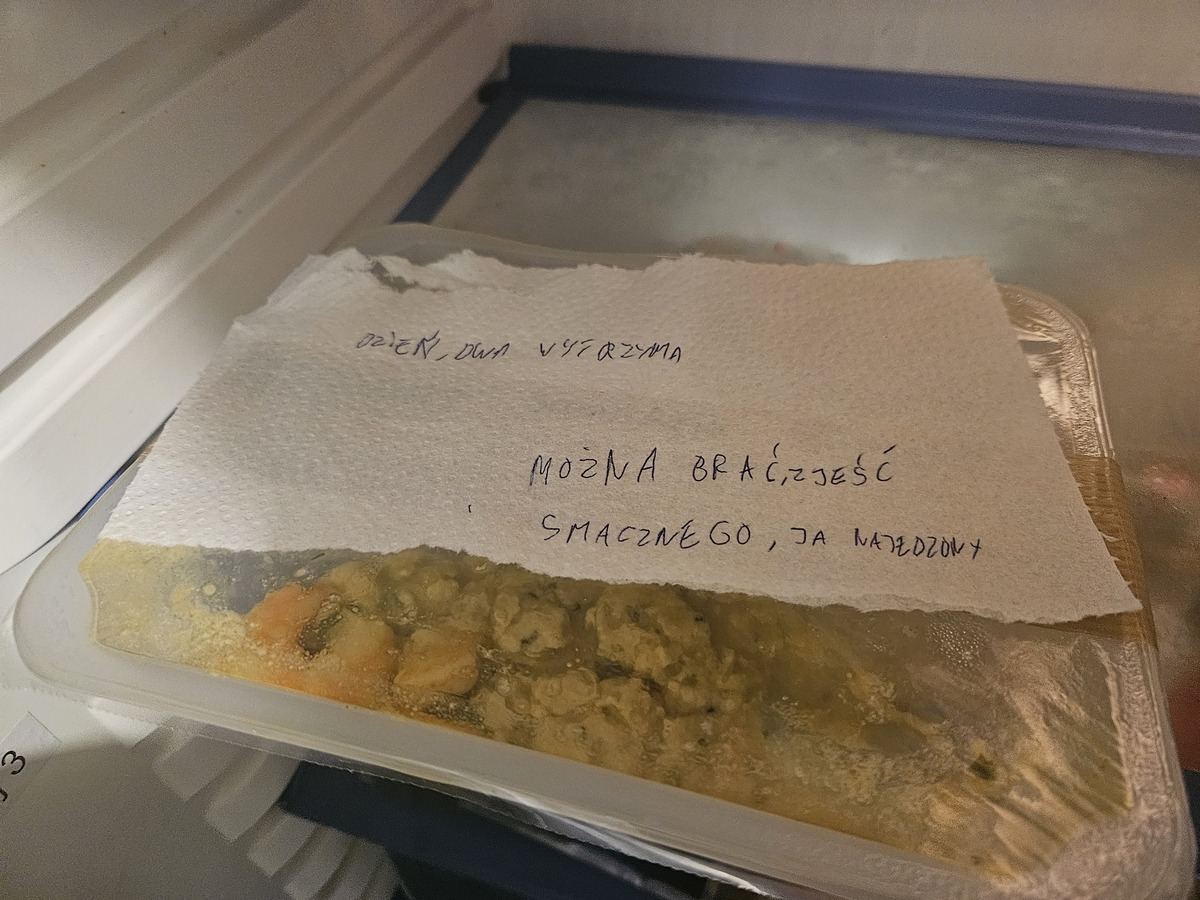 DZIEŃ, DWA WYTRZYMA
MOŻNA BRAĆ, ZJEŚĆ
SMACZNEGO, JA NAJEDZONY